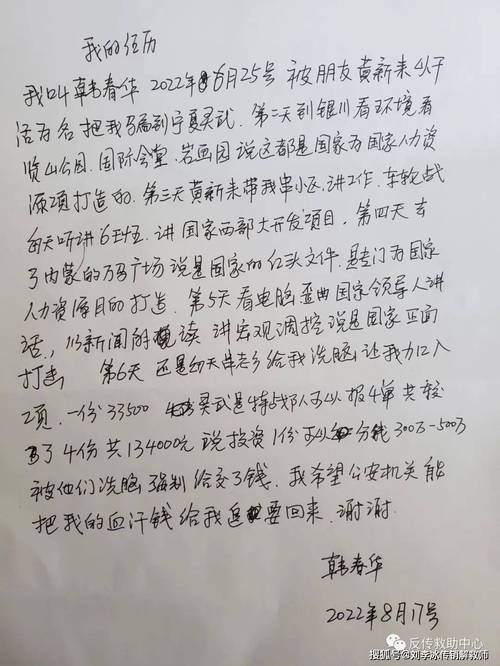 我的经历
我叫韩春华 2022年6月25号 被朋友黄新来以干
活为名把我骗到宁夏灵武. 第二天到银川看环境看
览山公园. 国际会堂. 岩画园 说这都是国家为国家人力资
源项打造的. 第三天黄新来带我串小区, 讲工作. 车轮战
每天听讲6班. 讲国家西部大开发项目. 第四天去
了内蒙的万马广场 说是国家的红头文件. 是专门为国家
人力资源目的打造. 第5天看电脑歪曲国家领导人讲
话, 以新闻的读 讲宏观调控说是国家正面
打击 第6天 还是每天串老乡给我洗脑, 让我加入
项. 一份33500 灵武是特战队可以报4单 共较
了4份共134000元 说投资1份可以分钱300万-500万
被他们洗脑 强制给交了钱. 我希望公安机关能
把我的血汗钱给我要回来. 谢谢.
韩春华
2022年8月17号
反传救助中心
搜狐号@刘李冰传销解救师